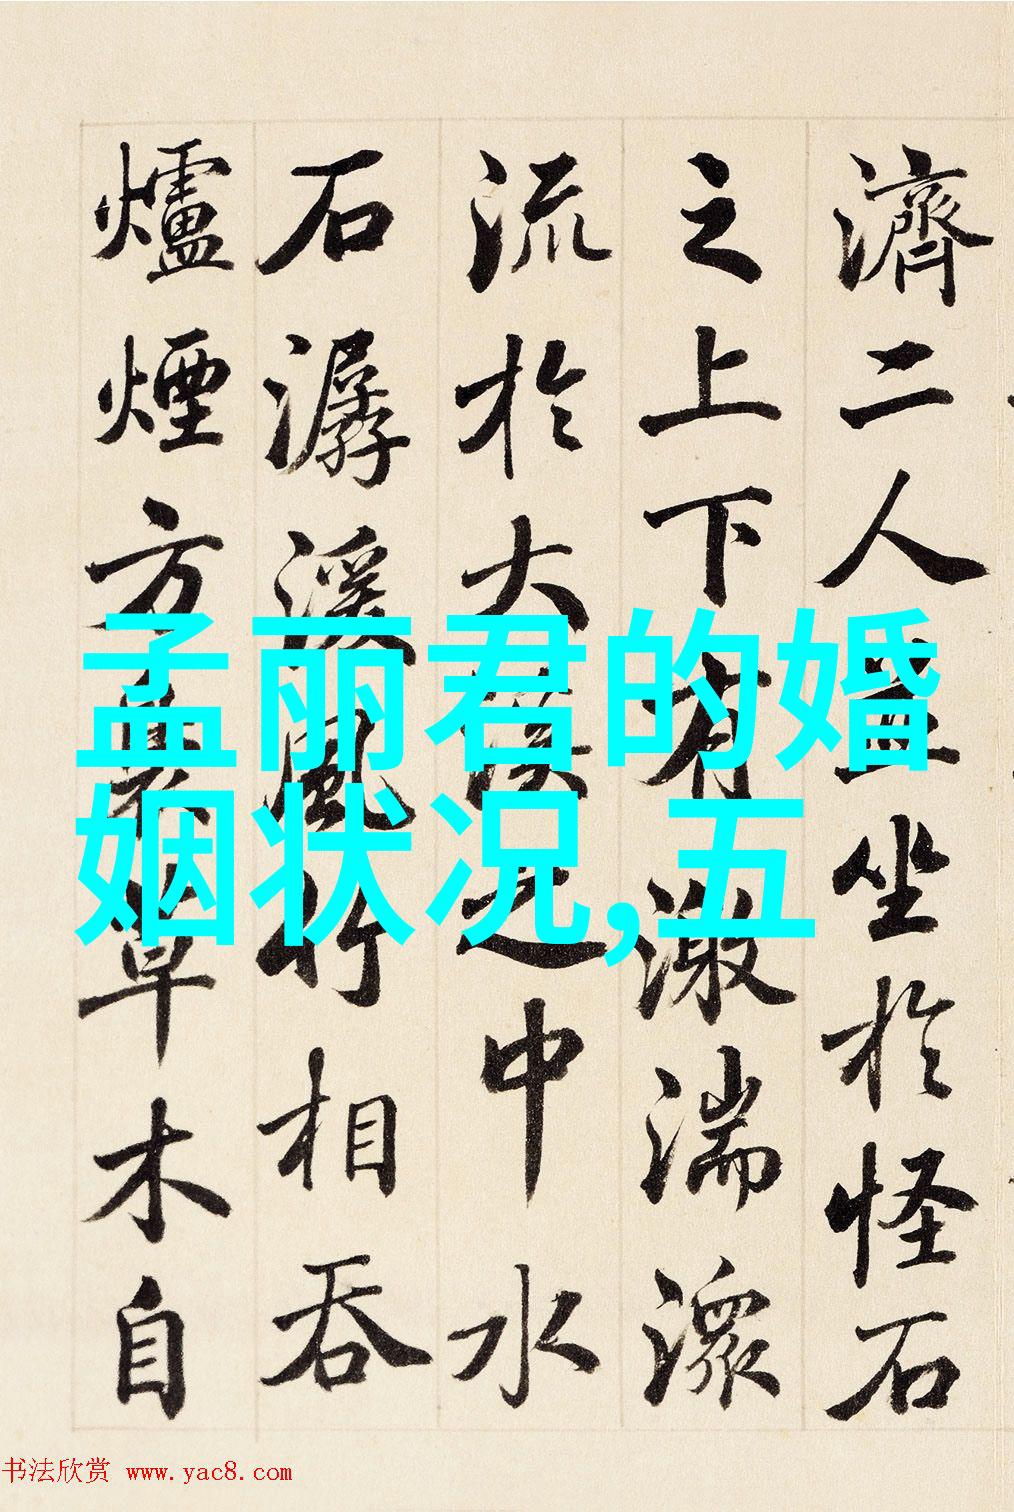 濟二人並坐於怪石
之上下有激湍潨
流於大溪之中水
石潺湲風竹相吞
爐煙方裊草木自
孟丽君的婚
姻状况,五
书法欣赏 www.yac8.com